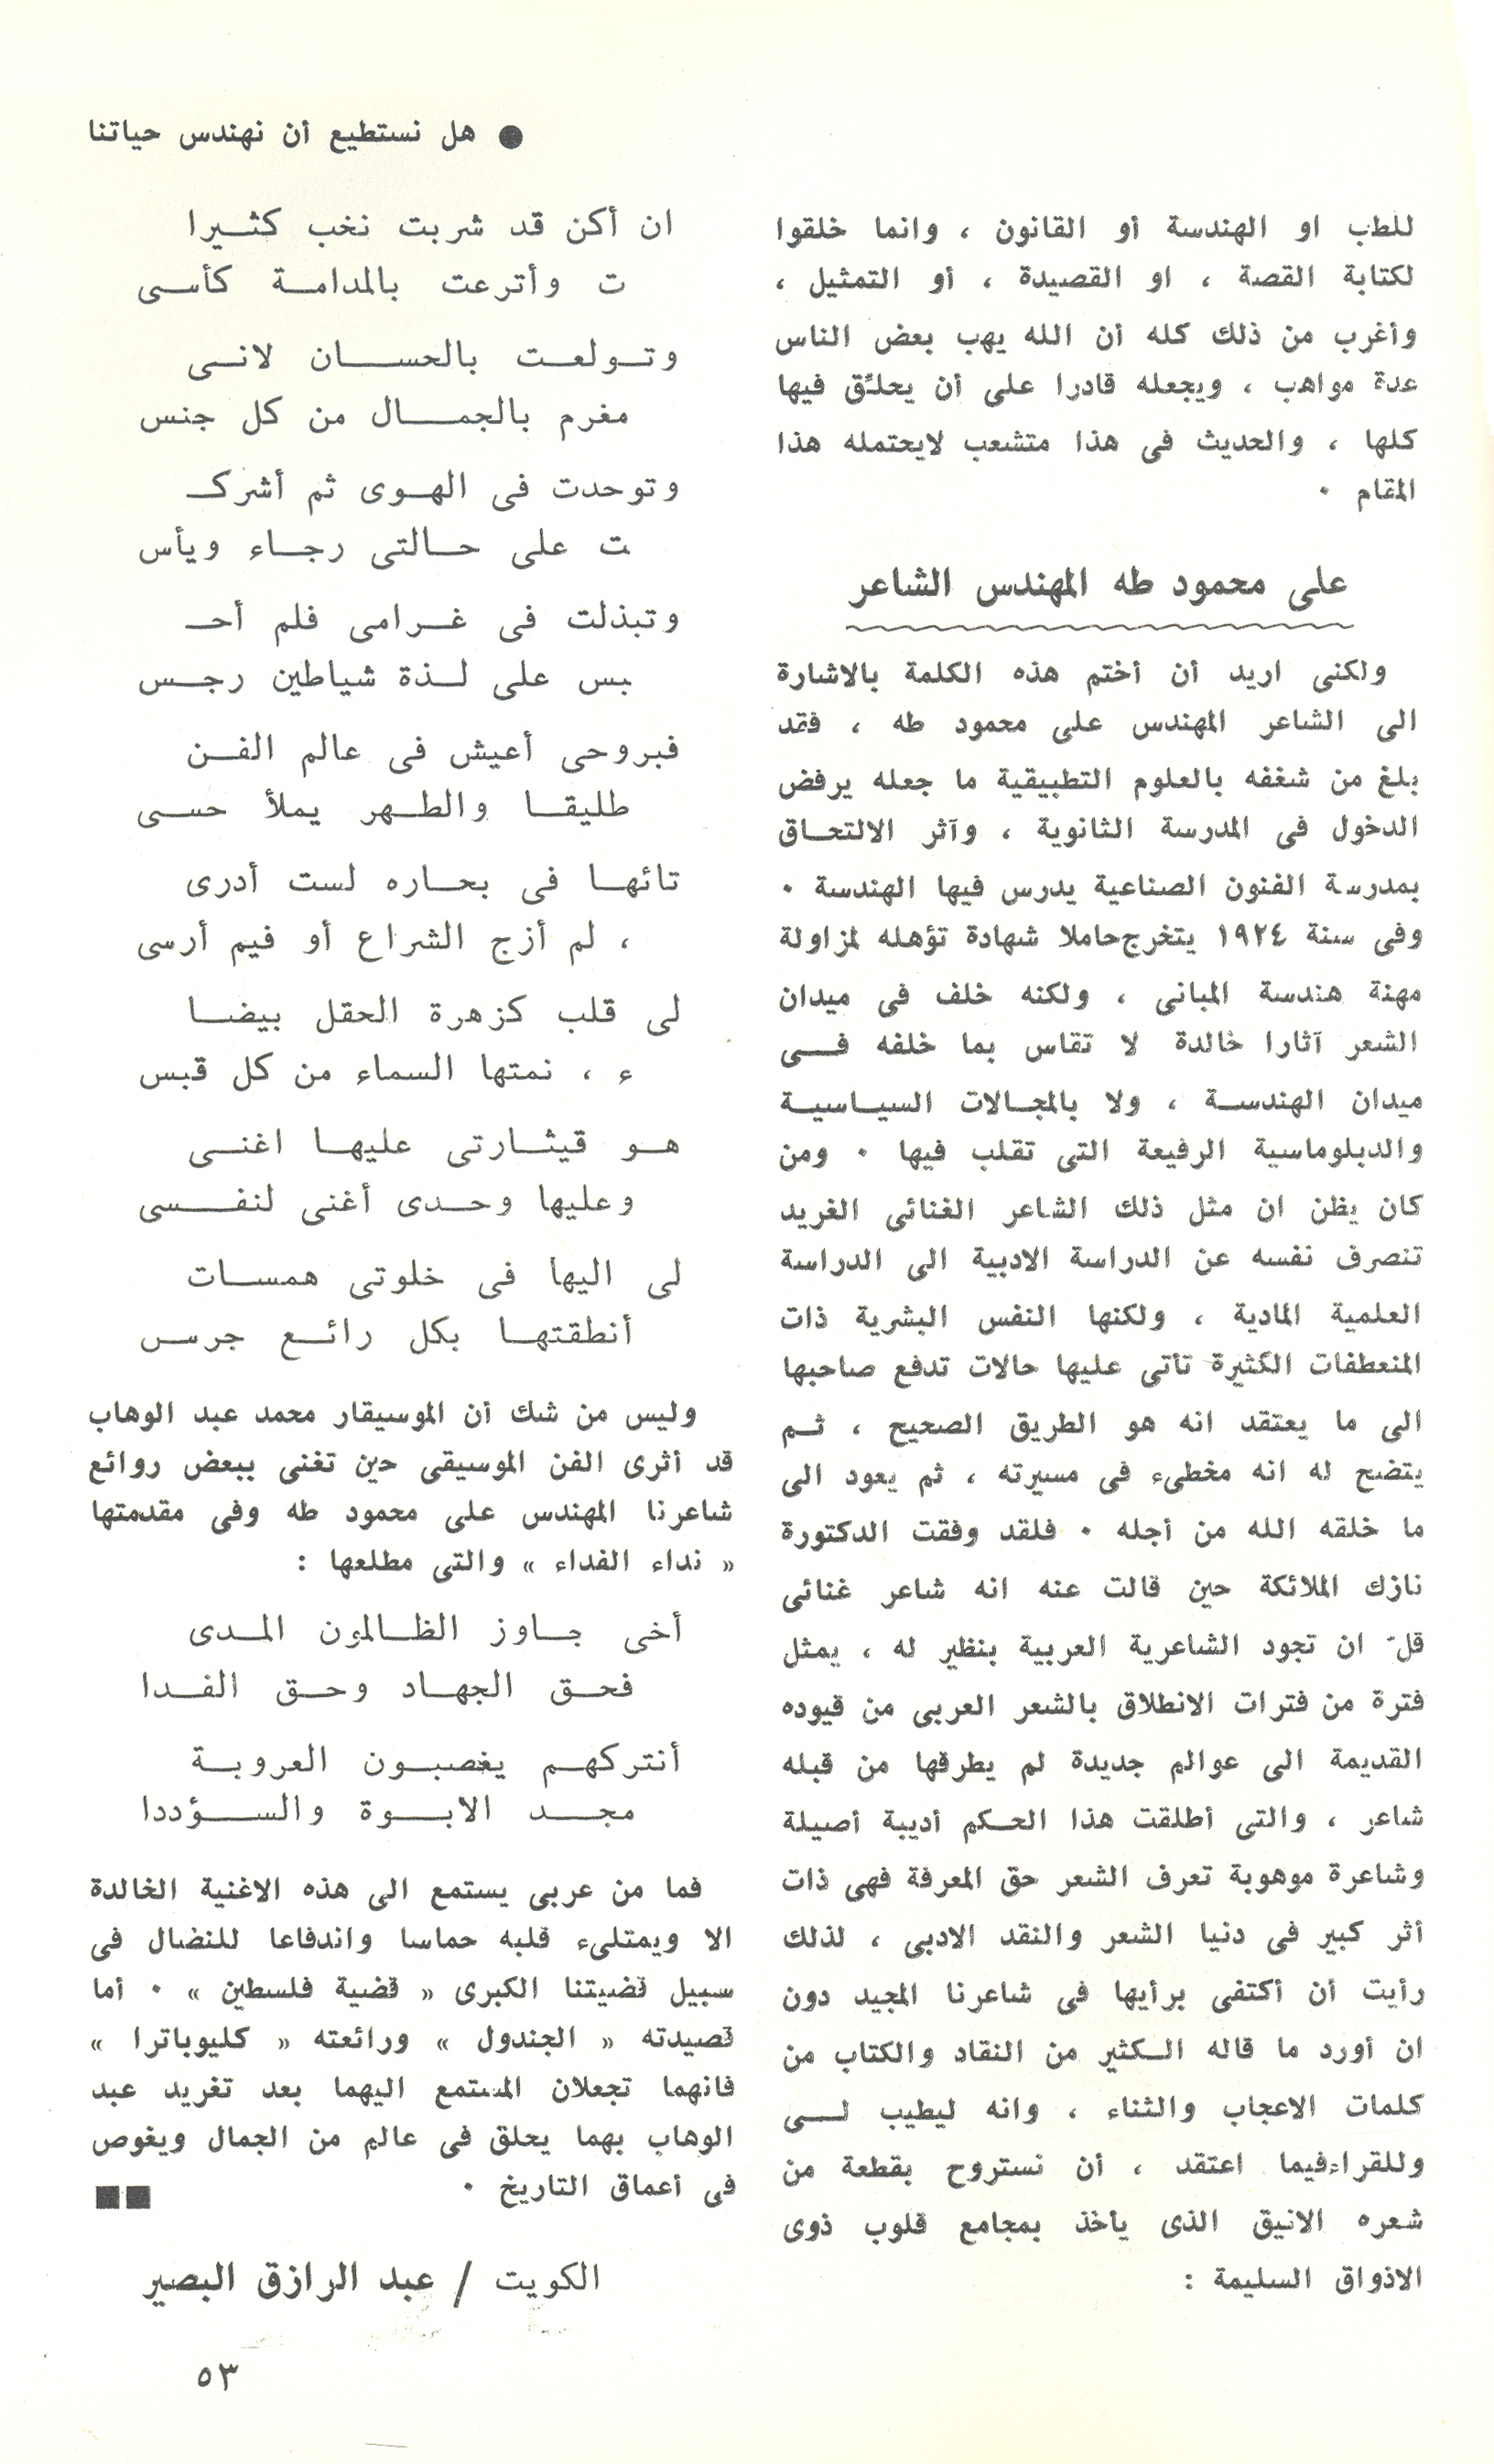 ● هل نستطيع أن نهندس حياتنا
للطب او الهندسة أو القانون ، وانما خلقوا
لكتابة القصة ، او القصيدة ، أو التمثيل ،
وأغرب من ذلك كله أن الله يهب بعض الناس
عدة مواهب ، ويجعله قادرا على أن يحلّق فيها
كلها ، والحديث فى هذا متشعب لايحتمله هذا
المقام ٠
على محمود طه المهندس الشاعر
ولكنى اريد أن أختم هذه الكلمة بالاشارة
الى الشاعر المهندس على محمود طه ، فقد
بلغ من شغفه بالعلوم التطبيقية ما جعله يرفض
الدخول فى المدرسة الثانوية ، وآثر الالتحاق
بمدرسة الفنون الصناعية يدرس فيها الهندسة ٠
وفى سنة ١٩٢٤ يتخرج حاملا شهادة تؤهله لمزاولة
مهنة هندسة المبانى ، ولكنه خلف فى ميدان
الشعر آثارا خالدة لا تقاس بما خلفه فى
ميدان الهندسة ، ولا بالمجالات السياسية
والدبلوماسية الرفيعة التى تقلب فيها ٠ ومن
كان يظن ان مثل ذلك الشاعر الغنائى الغريد
تنصرف نفسه عن الدراسة الادبية الى الدراسة
العلمية المادية ، ولكنها النفس البشرية ذات
المنعطفات الكثيرة تأتى عليها حالات تدفع صاحبها
الى ما يعتقد انه هو الطريق الصحيح ، ثم
يتضح له انه مخطىء فى مسيرته ، ثم يعود الى
ما خلقه الله من أجله ٠ فلقد وفقت الدكتورة
نازك الملائكة حين قالت عنه انه شاعر غنائى
قلّ ان تجود الشاعرية العربية بنظير له ، يمثل
فترة من فترات الانطلاق بالشعر العربى من قيوده
القديمة الى عوالم جديدة لم يطرقها من قبله
شاعر ، والتى أطلقت هذا الحكم أديبة أصيلة
وشاعرة موهوبة تعرف الشعر حق المعرفة فهى ذات
أثر كبير فى دنيا الشعر والنقد الادبى ، لذلك
رأيت أن أكتفى برأيها فى شاعرنا المجيد دون
ان أورد ما قاله الكثير من النقاد والكتاب من
كلمات الاعجاب والثناء ، وانه ليطيب لى
وللقراء فيما اعتقد ، أن نستروح بقطعة من
شعره الانيق الذى يأخذ بمجامع قلوب ذوى
الاذواق السليمة :
ان أكن قد شربت نخب كثيرا
ت وأترعت بالمدامة كأسى
وتولعت بالحسان لانى
مغرم بالجمال من كل جنس
وتوحدت فى الهوى ثم أشركـ
ت على حالتى رجاء ويأس
وتبذلت فى غرامى فلم أحـ
بس على لذة شياطين رجس
فبروحى أعيش فى عالم الفن
طليقا والطهر يملأ حسى
تائها فى بحاره لست أدرى
، لم أزج الشراع أو فيم أرسى
لى قلب كزهرة الحقل بيضا
ء ، نمتها السماء من كل قبس
هو قيثارتى عليها اغنى
وعليها وحدى أغنى لنفسى
لى اليها فى خلوتى همسات
أنطقتها بكل رائع جرس
وليس من شك أن الموسيقار محمد عبد الوهاب
قد أثرى الفن الموسيقى حين تغنى ببعض روائع
شاعرنا المهندس على محمود طه وفى مقدمتها
« نداء الفداء » والتى مطلعها :
أخى جاوز الظالمون المدى
فحق الجهاد وحق الفدا
أنتركهم يغصبون العروبة
مجد الابوة والسؤددا
فما من عربى يستمع الى هذه الاغنية الخالدة
الا ويمتلىء قلبه حماسا واندفاعا للنضال فى
سبيل قضيتنا الكبرى « قضية فلسطين » ٠ أما
قصيدته « الجندول » ورائعته « كليوباترا »
فانهما تجعلان المستمع اليهما بعد تغريد عبد
الوهاب بهما يحلق فى عالم من الجمال ويغوص
فى أعماق التاريخ ٠ ■■
الكويت / عبد الرازق البصير
٥٣